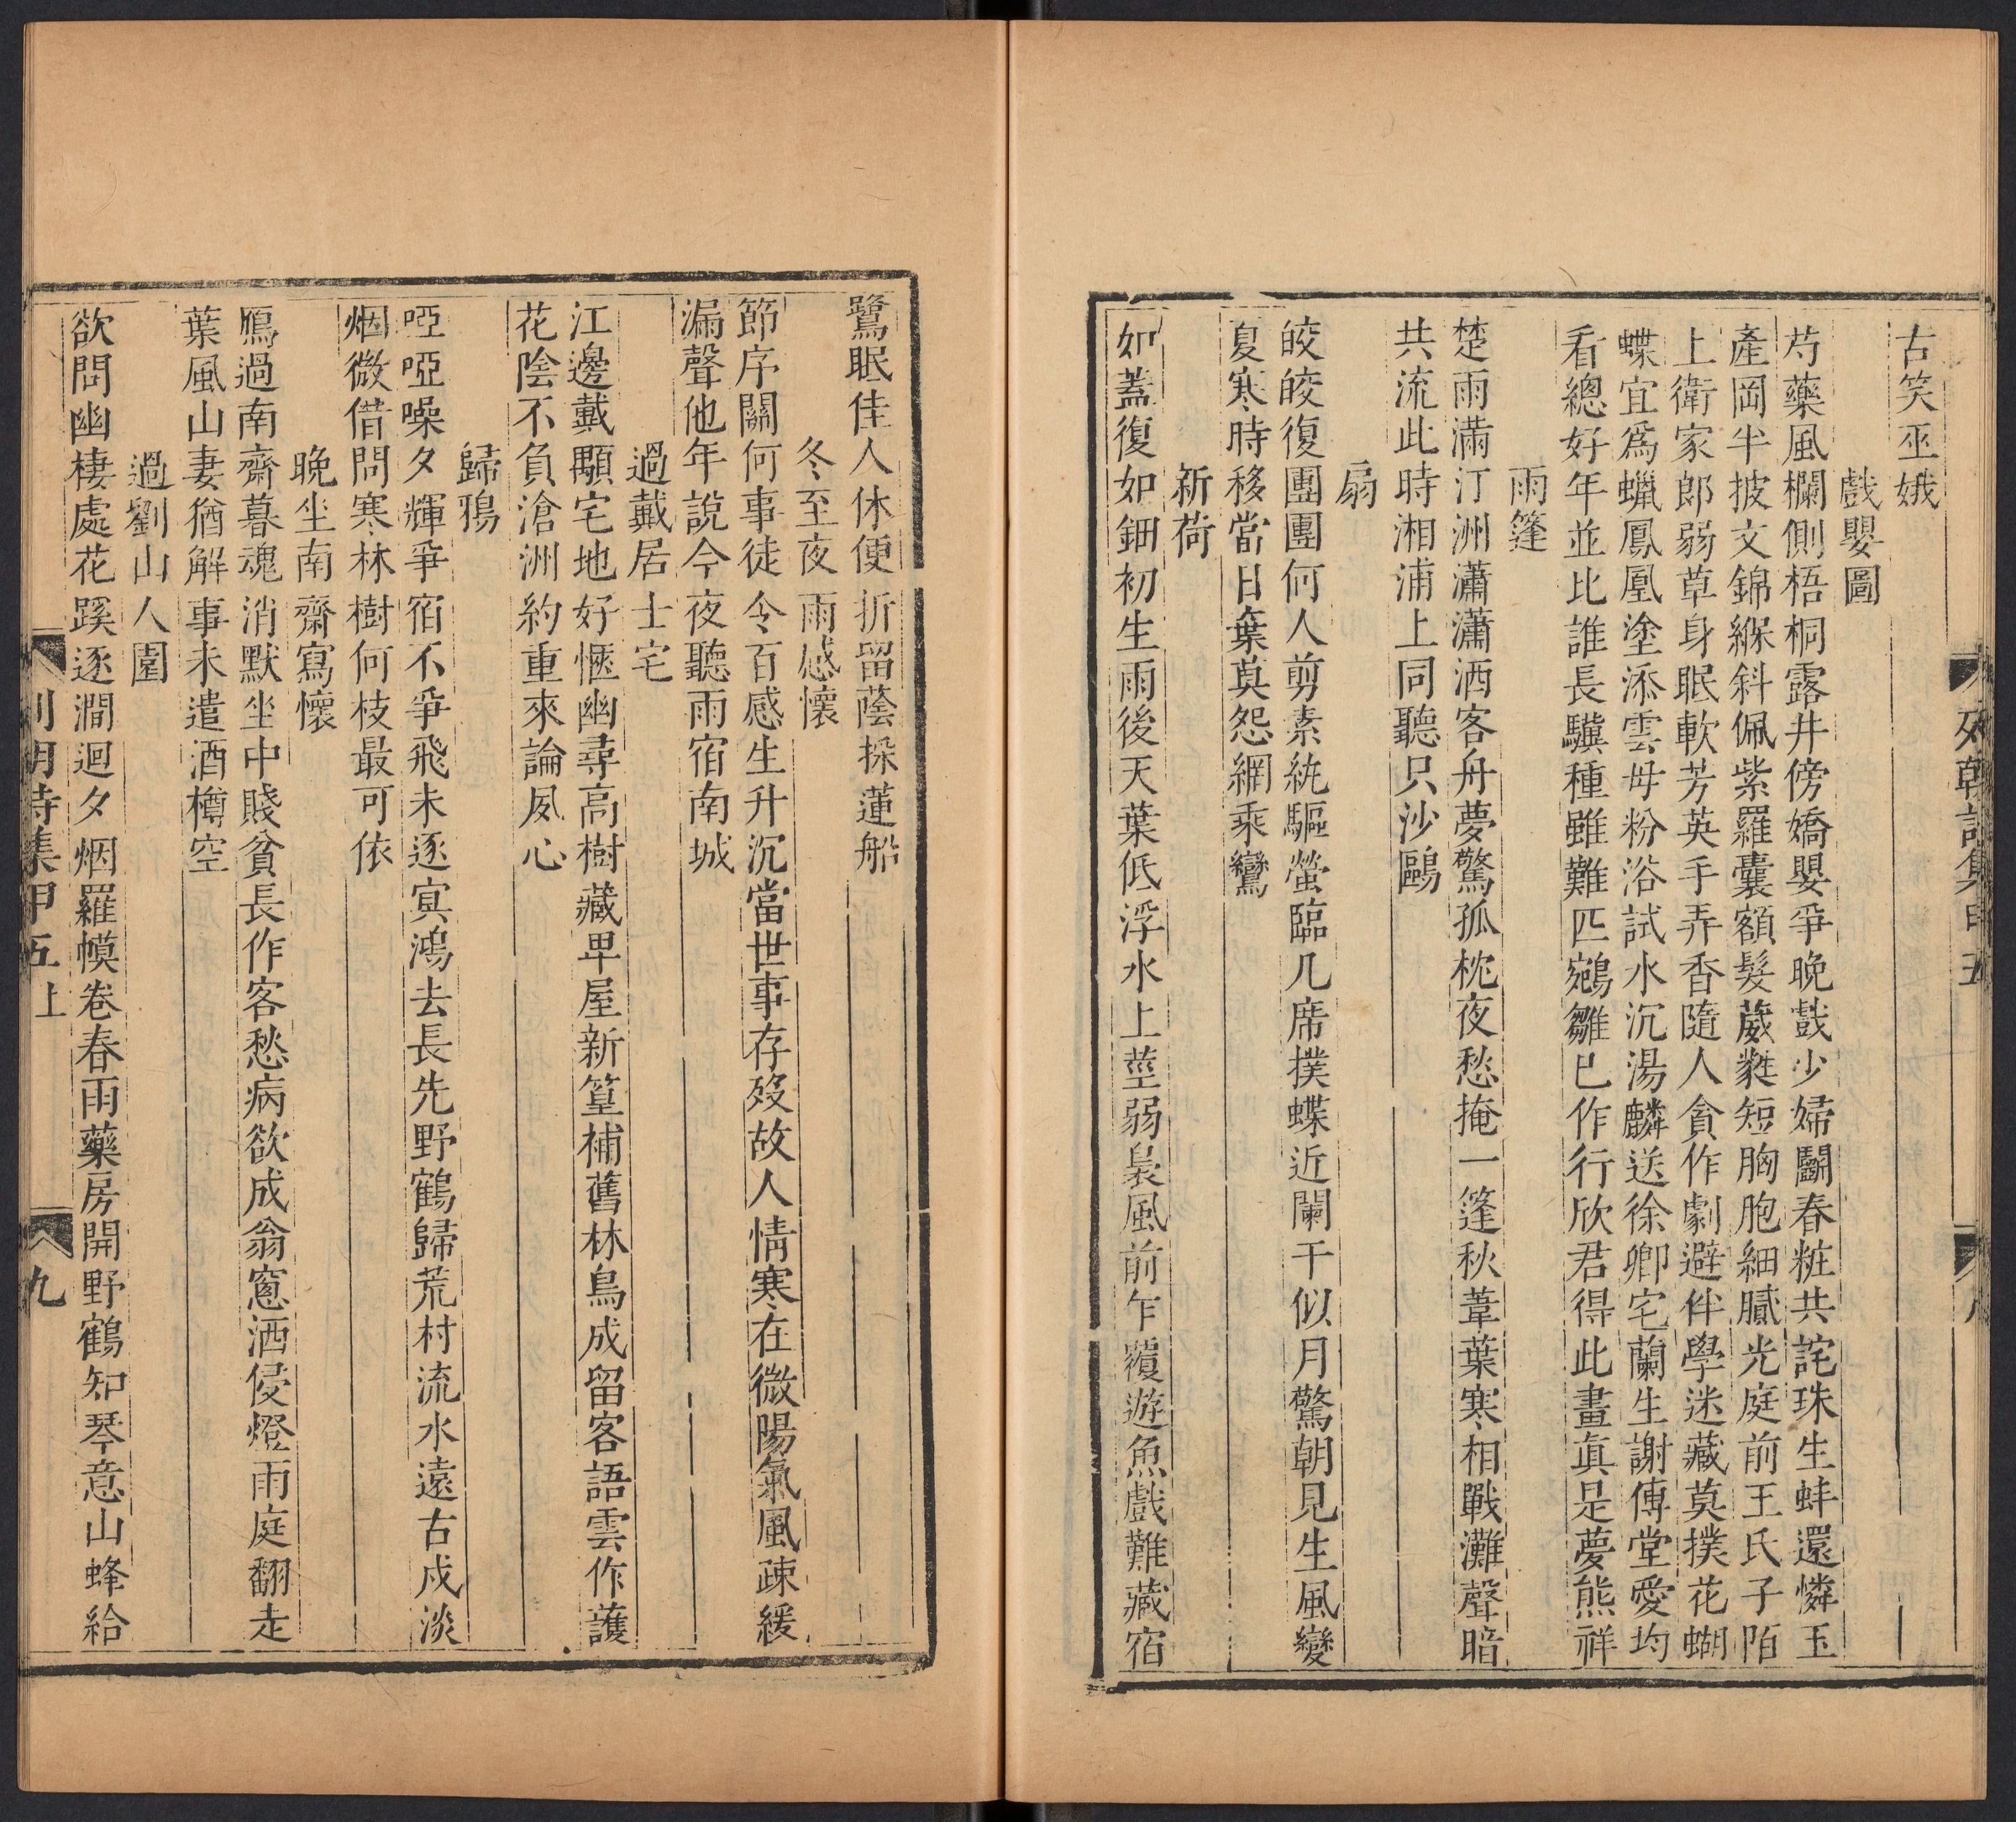 古笑巫娥
戲嬰圖
芍藥風欄側梧桐露井傍嬌嬰爭晚戲少婦鬬春粧共詫珠生蚌還憐玉
產岡半披文錦緥斜佩紫羅囊額髮葳蕤短胸胞細膩光庭前王氏子陌
上衛家郎弱草身眠軟芳英手弄香隨人貪作劇避伴學迷藏莫撲花蝴
蝶宜爲蠟鳳凰塗添雲母粉浴試水沉湯麟送徐卿宅蘭生謝傅堂愛均
看總好年並比誰長驥種雖難匹鵷雛已作行欣君得此畫眞是夢熊祥
雨篷
楚雨滿汀洲瀟瀟洒客舟夢驚孤枕夜愁掩一篷秋葦葉寒相戰灘聲暗
共流此時湘浦上同聽只沙鷗
扇
皎皎復團團何人剪素紈驅螢臨几席撲蝶近闌干似月驚朝見生風變
夏寒時移當日棄莫怨網乘鸞
新荷
如蓋復如鈿初生雨後天葉低浮水上莖弱裊風前乍覆遊魚戲難藏宿
鷺眠佳人休便折留蔭採蓮船
冬至夜雨感懷
節序關何事徒令百感生升沉當世事存歿故人情寒在微陽氣風疎緩
漏聲他年說今夜聽雨宿南城
過戴居士宅
江邊戴顒宅地好愜幽尋高樹藏卑屋新篁補舊林鳥成留客語雲作護
花陰不負滄洲約重來論夙心
歸鴉
啞啞噪夕輝爭宿不爭飛未逐㝠鴻去長先野鶴歸荒村流水遠古戍淡
烟微借問寒林樹何枝最可依
晚坐南齋寫懷
鴈過南齋暮魂消默坐中賤貧長作客愁病欲成翁窻洒侵燈雨庭翻走
葉風山妻猶解事未遣酒樽空
過劉山人園
欲問幽棲處花蹊逐澗迴夕烟羅幙卷春雨藥房開野鶴知琴意山蜂給
列朝詩集甲五上
九